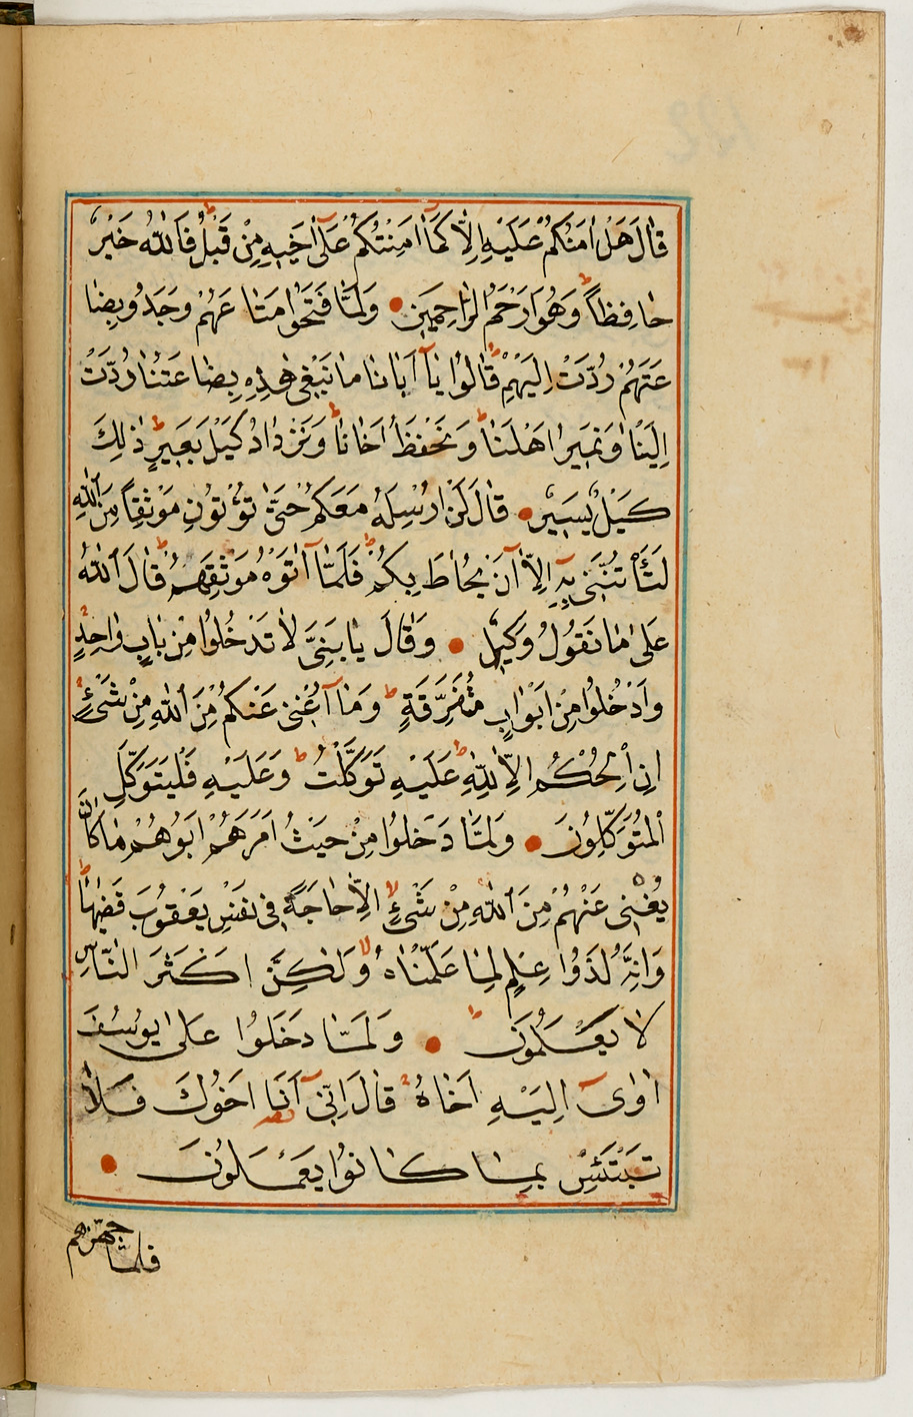 قَالَ هَلْ اٰمَنُكُمْ عَلَيْهِ اِلَّا كَمَٓا اَمِنْتُكُمْ عَلٰٓى اَخ۪يهِ مِنْ قَبْلُ ط فَاللّٰهُ خَيْرٌ
حَافِظًا ط وَهُوَ اَرْحَمُ الرَّاحِم۪ينَ ● وَلَمَّا فَتَحُوا مَتَاعَهُمْ وَجَدُوا بِضَا
عَتَهُمْ رُدَّتْ اِلَيْهِمْ قَالُوا يَٓا اَبَانَا مَا نَبْغ۪ى هٰذِه۪ بِضَاعَتُنَا رُدَّتْ
اِلَيْنَا وَنَم۪يرُ اَهْلَنَا ط وَنَحْفَظُ اَخَانَا ط وَنَزْدَادُ كَيْلَ بَع۪يرٍ ط ذٰلِكَ
كَيْلٌ يَس۪يرٌ ● قَالَ لَنْ اُرْسِلَهُ مَعَكُمْ حَتّٰى تُؤْتُونِ مَوْثِقًا مِنَ اللّٰهِ
لَتَأْتُنَّن۪ى بِه۪ٓ اِلَّٓا اَنْ يُحَاطَ بِكُمْ ط فَلَمَّٓا اٰتَوْهُ مَوْثِقَهُمْ ط قَالَ اللّٰهُ
عَلٰى مَا نَقُولُ وَك۪يلٌ ● وَقَالَ يَا بَنِىَّ لَا تَدْخُلُوا مِنْ بَابٍ وَاحِدٍ
وَادْخُلُوا مِنْ اَبْوَابٍ مُتَفَرِّقَةٍ ط وَمَٓا اُغْن۪ى عَنْكُمْ مِنَ اللّٰهِ مِنْ شَىْءٍ ط
اِنِ الْحُكْمُ اِلَّا لِلّٰهِ ط عَلَيْهِ تَوَكَّلْتُ ط وَعَلَيْهِ فَلْيَتَوَكَّلِ
الْمُتَوَكِّلُونَ ● وَلَمَّا دَخَلُوا مِنْ حَيْثُ اَمَرَهُمْ اَبُوهُمْ مَا كَانَ
يُغْن۪ى عَنْهُمْ مِنَ اللّٰهِ مِنْ شَىْءٍ لا اِلَّا حَاجَةً ف۪ى نَفْسِ يَعْقُوبَ قَضٰيهَا ط
وَاِنَّهُ لَذُوا عِلْمٍ لِمَا عَلَّمْنَاهُ لا وَلٰكِنَّ اَكْثَرَ النَّاسِ
لَا يَعْلَمُونَ ط ● وَلَمَّا دَخَلُوا عَلٰى يُوسُفَ
اٰوٰٓى اِلَيْهِ اَخَاهُ قَالَ اِنّ۪ٓى اَنَا اَخُوكَ فَلَا
تَبْتَئِسْ بِمَا كَانُوا يَعْمَلُونَ ●
فلما جهزهم